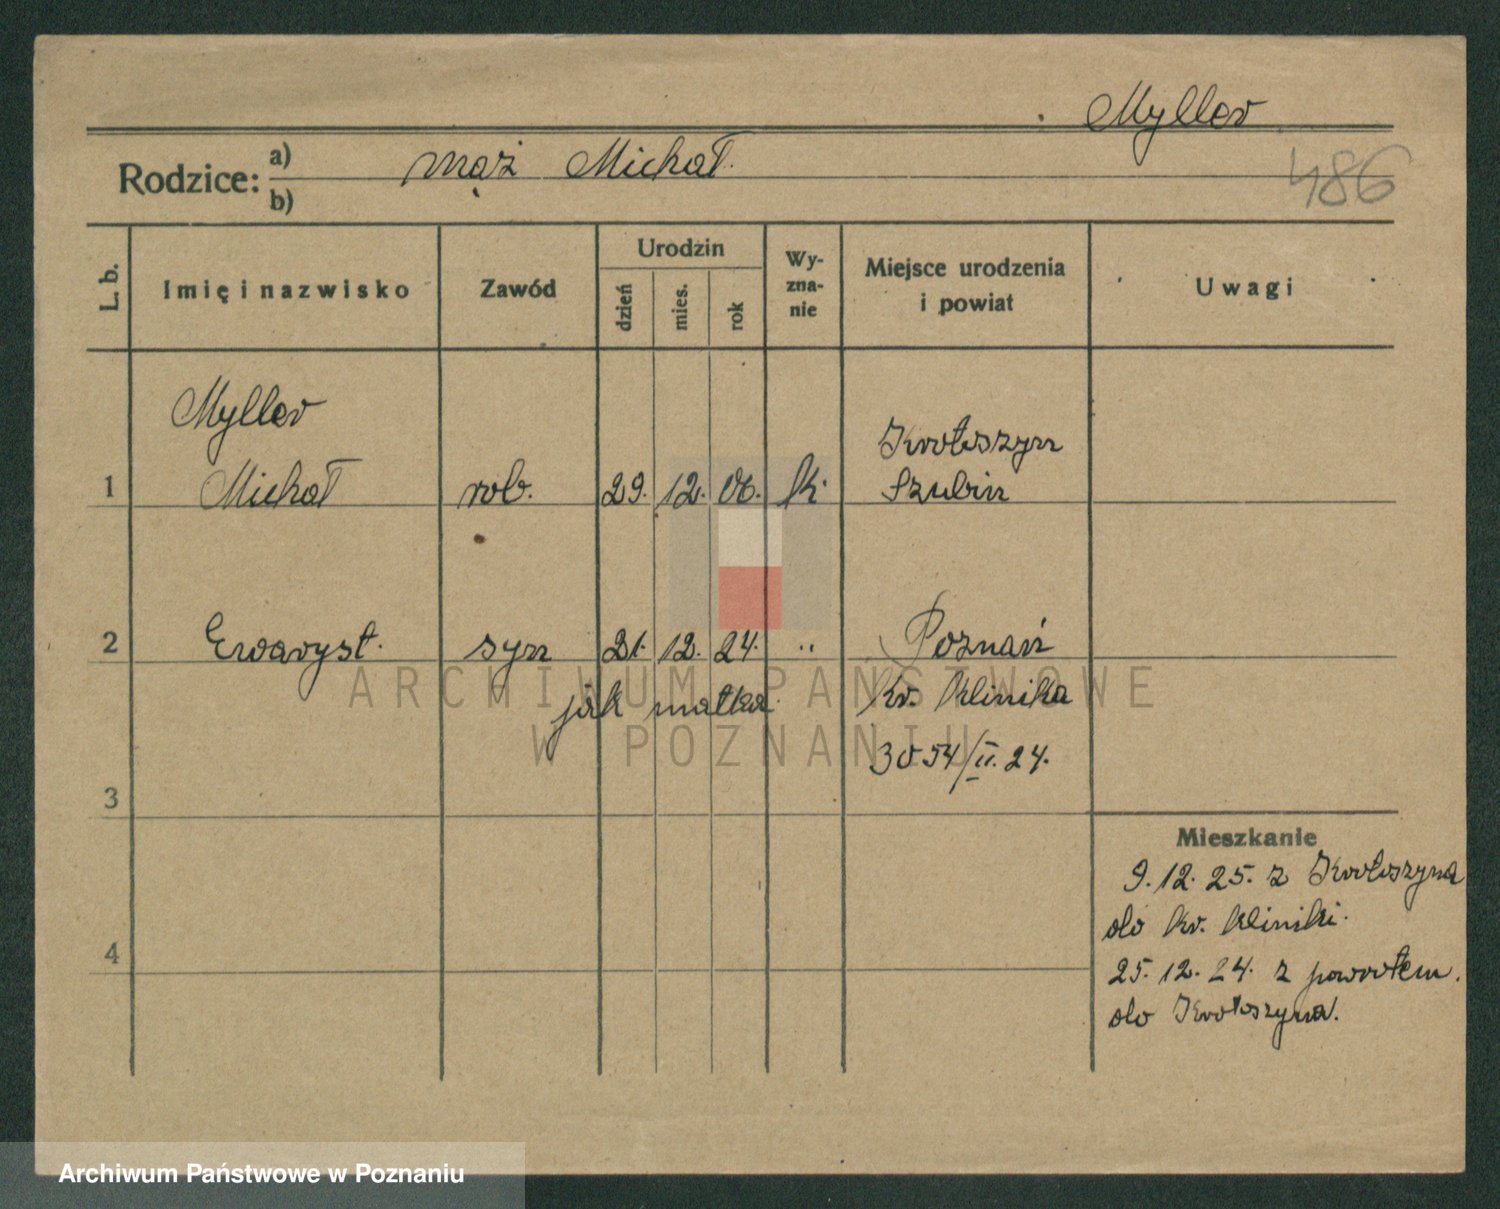 Myller
Rodzice: a) mąż Michał.
b)
486
L. b.
Imię i nazwisko
Zawód
Urodzin
dzień
mies.
rok
Wy-
zna-
nie
Miejsce urodzenia
i powiat
Uwagi
Myller
Krotoszyn
1 Michał rob. 29. 12. k. Szubin
2 Ewaryst. syn 21. 12. 24. " Poznań
jak matka. Kr. Klinika
3054/II. 24.
3
Mieszkanie
9. 12. 25. z Krotoszyna
do Kr. Kliniki.
4
25. 12. 24. z powrotem.
do Krotoszyna.
ARCHIWUM PAŃSTWOWE
W POZNANIU
Archiwum Państwowe w Poznaniu